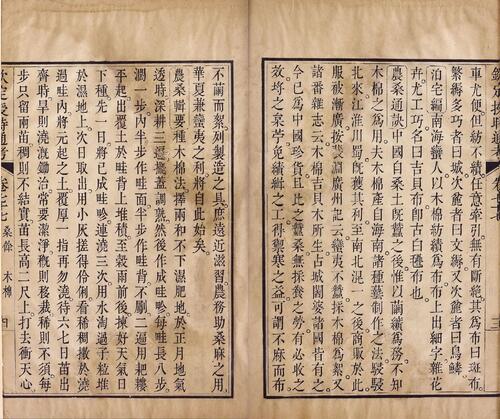 車尤便但紡不績任意牽引無有斷絕其為布曰斑布
繁縟多巧者曰城次麄者曰文縟又次麄者曰烏驎
泊宅編南海蠻人以木棉紡績為布布上出細字雜花
卉尤工巧名曰吉貝布即古白氎布也
農桑通訣中國自桑土既蠶之後惟以繭纊為務不知
木棉之為用夫木棉產自海南諸種藝制作之法駸駸
北來江淮川蜀既獲其利至南北混一之後商販於此
服被漸廣按裴淵廣州記云蠻夷不蠶採木棉為絮又
諸番雜志云木棉吉貝木所生占城闍婆諸國皆有之
今已為中國珍貨且比之蠶桑無採養之勞有必收之
效埒之枲苧免績緝之工得禦寒之益可謂不麻而布
不繭而絮列製造之具庶遠近滋習農務助桑麻之用
華夏兼蠻夷之利將自此始矣
農桑輯要種木棉法擇兩和不下濕肥地於正月地氣
透時深耕三遍擺蓋調熟然後作成畦畛每畦長八步
濶一步內半步作畦面半步作畦背劚二遍用耙耬
平起出覆土於畦背上堆積至穀雨前後揀好天氣日
下種先一日將已成畦畛連澆三次用水淘過子粒堆
於濕地上次日取出用小灰搓得伶俐看稀稠撒於澆
過畦內將元起之土覆厚一指再勿澆待六七日苗出
齊時旱則澆溉鋤治常要潔淨穊則移栽稀則不須每
步只留兩苗稠則不結實苗長高二尺上打去衝天心
欽定授時通考 卷七七 桑餘 木棉